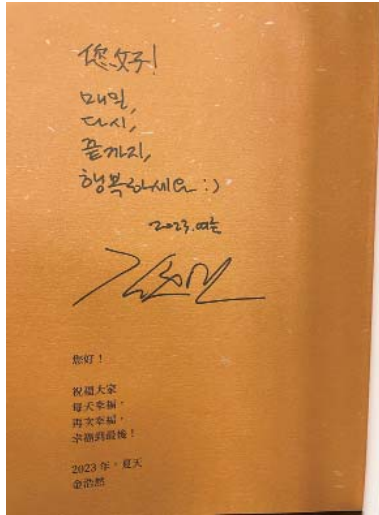 您好!
매일,
다시,
끝까지,
행복하세요 :)
2023. 여름
您好！
祝福大家
每天幸福，
再次幸福，
幸福到最後！
2023 年，夏天
金浩然